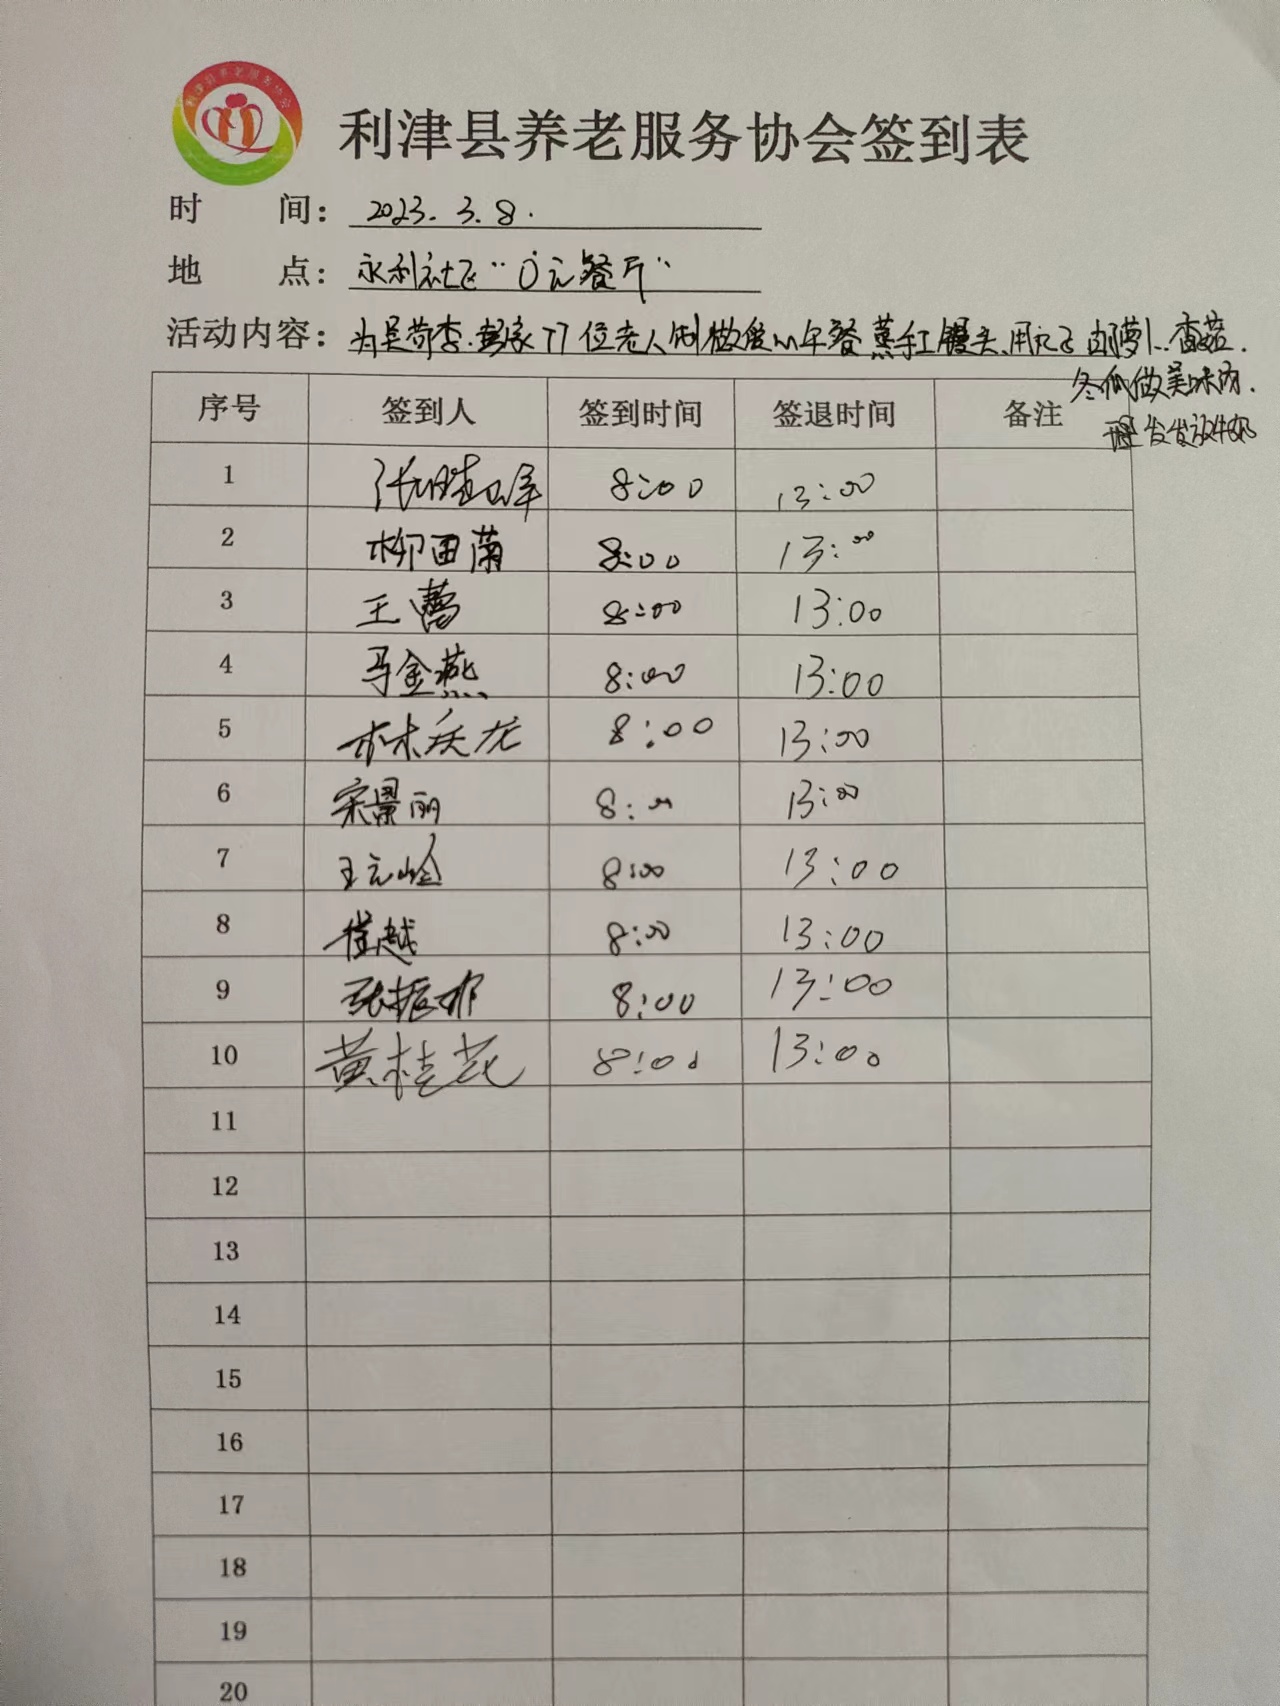 利津县养老服务协会
利津县养老服务协会签到表
时 间： 2023.3.8.
地 点： 永利社区“0元餐厅”
活动内容： 77位老人制做爱心午餐 蒸手工馒头、用 萝卜.香菇.
冬瓜做美味肉.
理发发放牛奶
序号 签到人 签到时间 签退时间 备注
1 8:00 13:00
2 柳田蘭 8:00 13:00
3 王 8:00 13:00
4 马金燕 8:00 13:00
5 林 龙 8:00 13:00
6 宋景丽 8:00 13:00
7 王元岭 8:00 13:00
8 崔越 8:00 13:00
9 张振 8:00 13:00
10 黄桂花 8:00 13:00
11
12
13
14
15
16
17
18
19
20